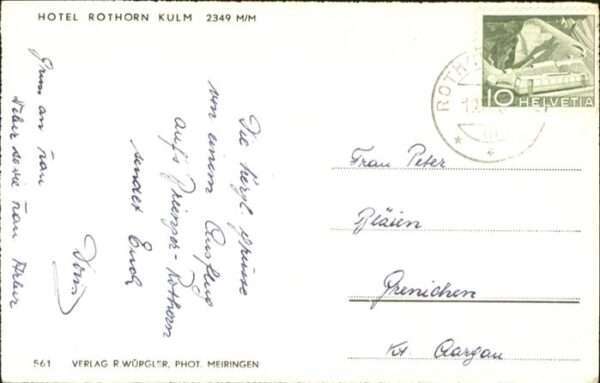 HOTEL ROTHORN KULM 2349 M/M
ROTH
10 HELVETIA
Die herzl. Grüsse
von einem Ausflug
aufs Brienzer-Rothorn
sendet Euch
Gruss an Frau
sowie Frau
Frau Peter
Bläien
Grenichen
Kt. Aargau
561 VERLAG R. WÜRGLER, PHOT. MEIRINGEN